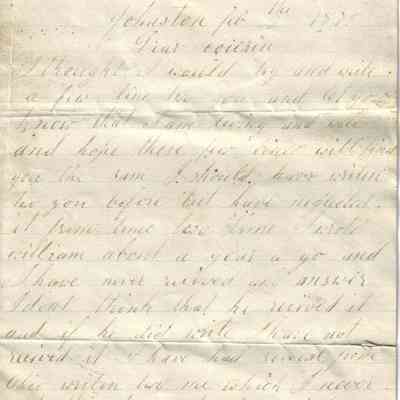 Johnston feb
Dear cousin
I thought I would try and write
a few line to you and let you
know that I am living and well
and hope these few lines will find
you the same I should have writen
to you before but have neglected
it time I wrote
william about a year a go and
I have never recived an answer
I dont think that he recived it
and if he did write I have not
recived it I have had several
writen to me which I never